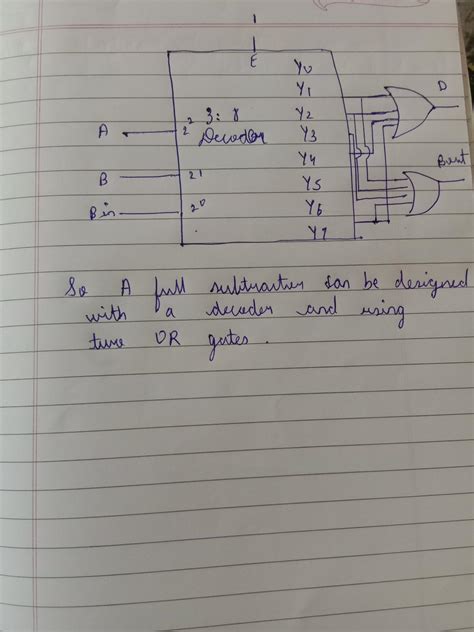 1
E
Y0
Y1
D
3:8
Y2
A
2²
Decoder
Y3
Y4
Bout
B
2¹
Y5
Bin
2⁰
Y6
Y7
So A full subtractor can be designed
with a decoder and using
two OR gates.